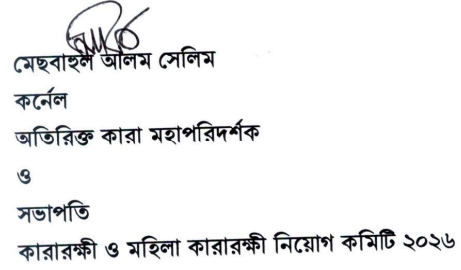 মেছবাহুল আলম সেলিম
কর্নেল
অতিরিক্ত কারা মহাপরিদর্শক
ও
সভাপতি
কারারক্ষী ও মহিলা কারারক্ষী নিয়োগ কমিটি ২০২৬